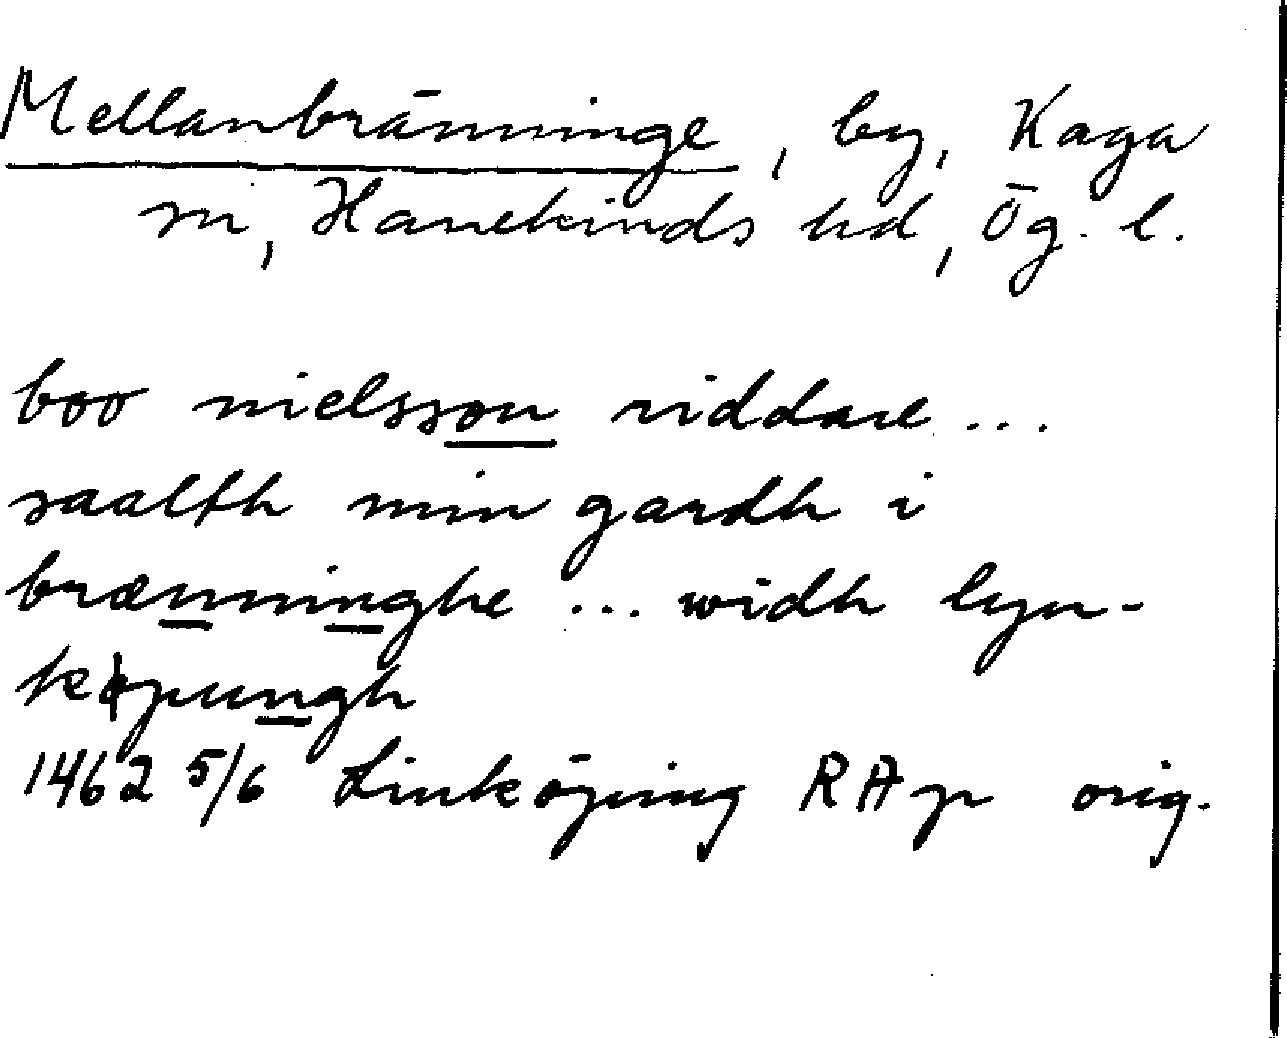 Mellanbränninge, by, Kaga
sn, Hanekinds hd, Ög. l.
boo nielsson riddare ...
saalth min gardh i
brænninghe ... widh lyn-
køpungh
1462 5/6 Linköping RAp orig.